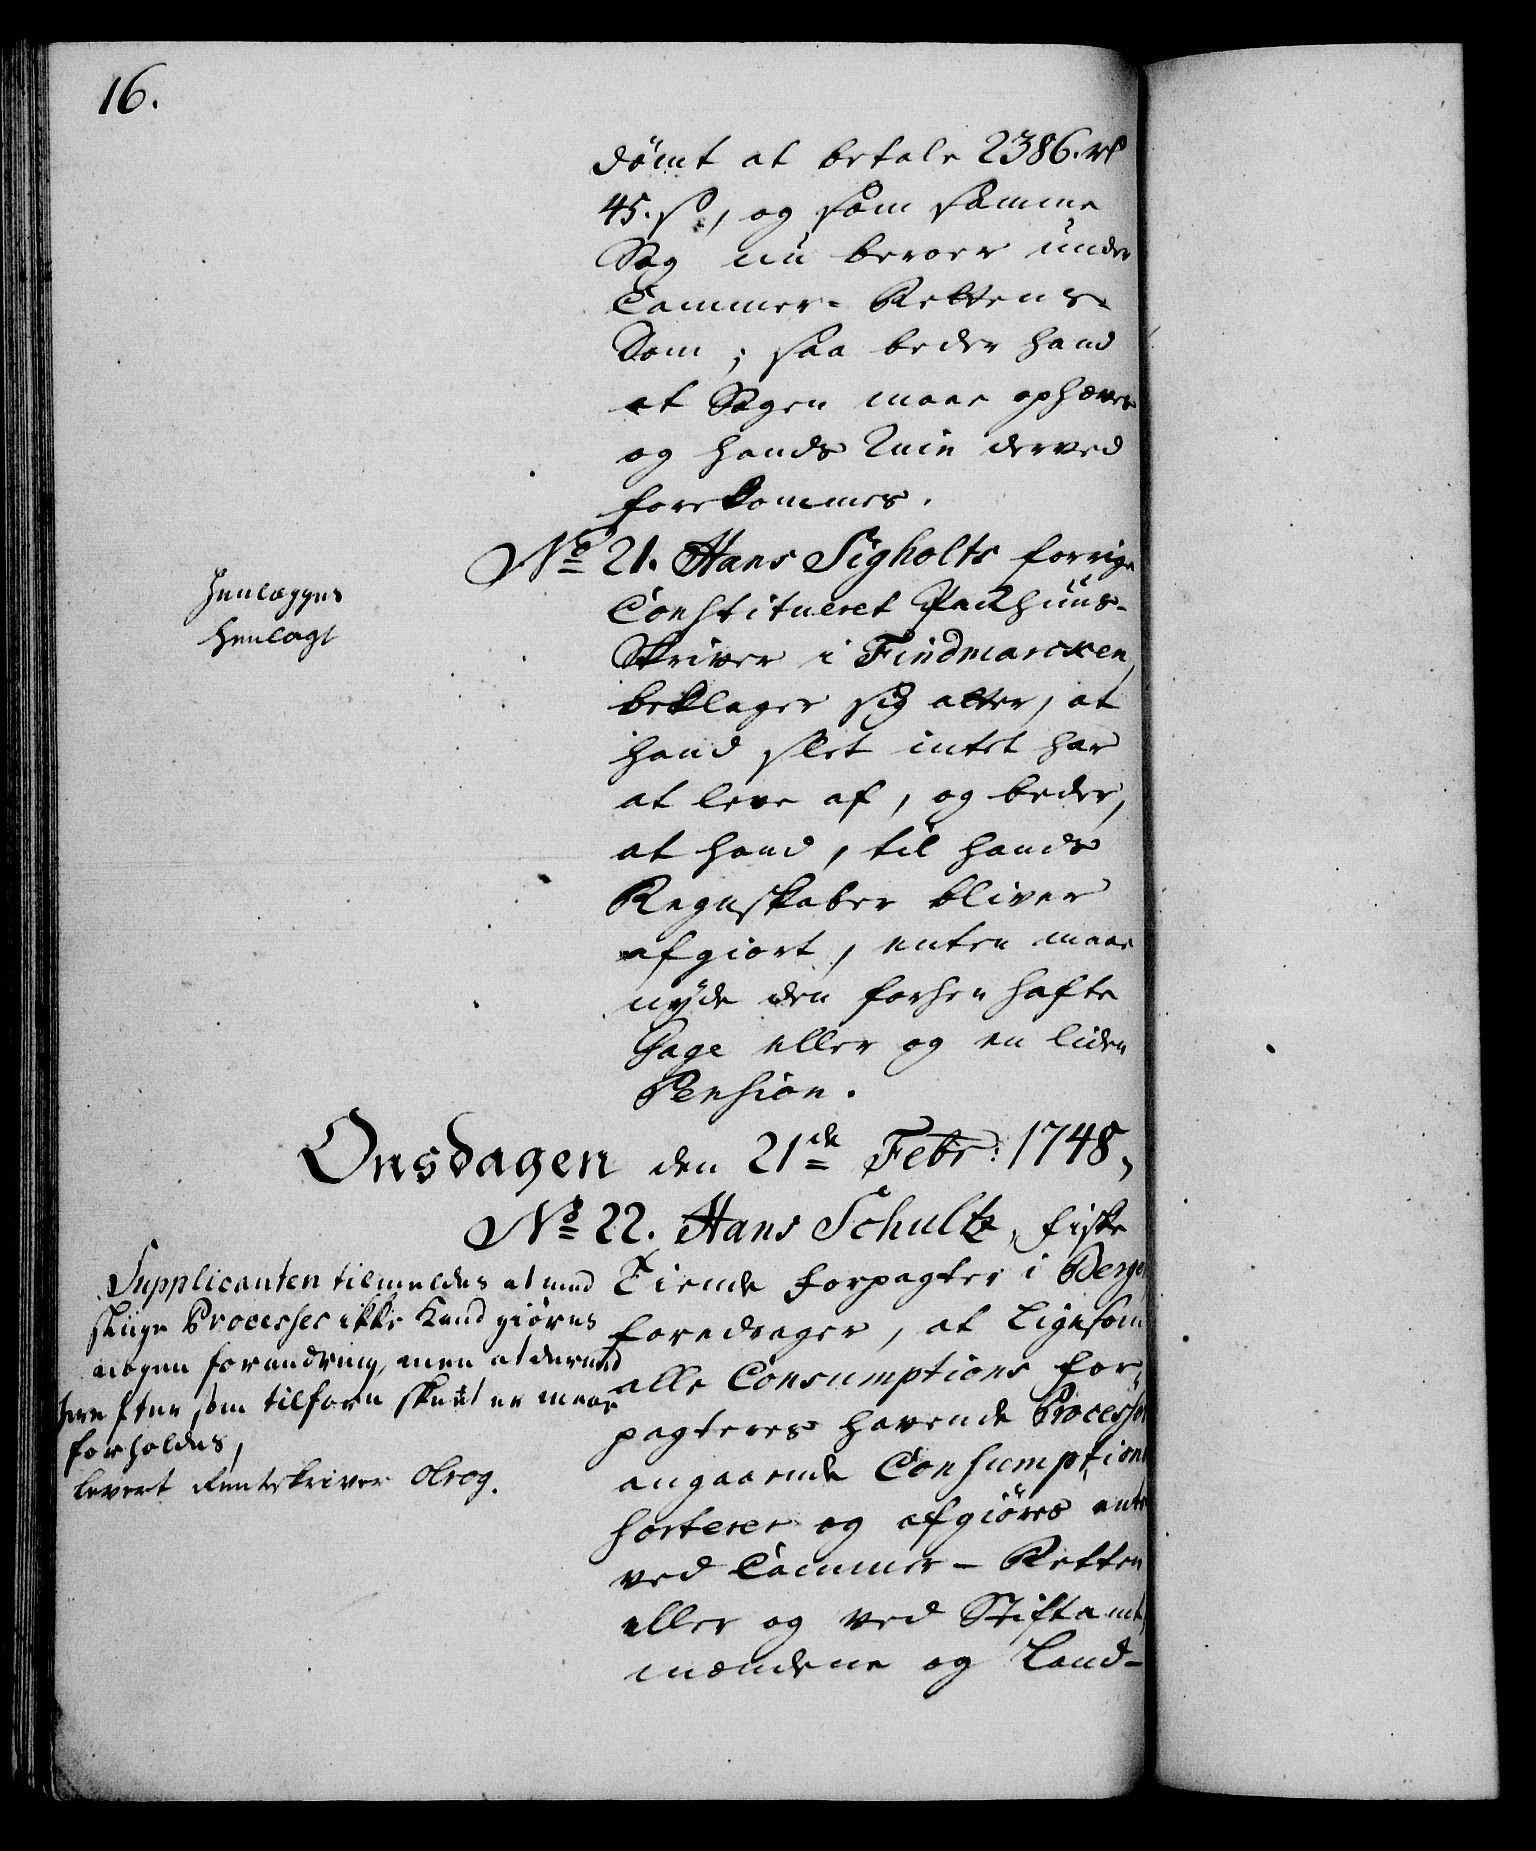 16.
dömt at betale 2386. rd
45. s, og som samme
Sag nu beroer under
Cammer-Rettens-
Dom; saa beder hand
at Sagen maae ophæves
og hands Ruin derved
forekommes.
No 21. Hans Sigholts forrige
Constitueret Packhuus-
Skriver i Findmarcken,
beklager sig atter, at
hand slet intet har
at leve af, og beder,
at hand, til hands
Regnskaber bliver
afgiort, enten maae
nyde den forhen hafte
Gage eller og en liden
Pension.
Henlægges
henlagt
Onsdagen den 21de Febr: 1748,
No 22. Hans Schultz, fiske
Tiende forpagter i Bergen
foredrager, at Ligesom
alle Consumptions for-
pagteres havende Processer
angaaende Consumptions
sorterer og afgiøres enten
ved Cammer-Retten
eller og ved Stiftamt,
mændene og Land-
Supplicanten tilmeldes at med
slige Processer ikke Kand giøres
nogen forandring, men at dermed
herefter, som tilforn skeet er maae
forholdes,
levert Rentskriver Olrog.